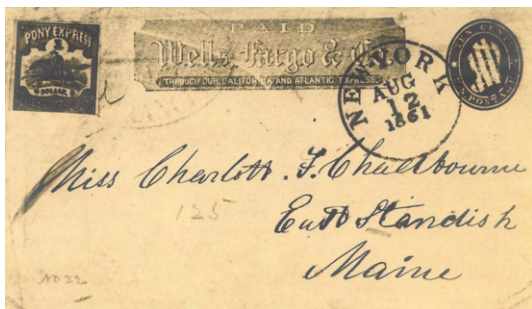 PONY EXPRESS
1
DOLLAR.
PAID
Wells, Fargo & Co
THROUGH OUR CALIFORNIA AND ATLANTIC EXPRESS.
NEW YORK
AUG
12
1861
TEN CENTS
U.S. POSTAGE
Miss Charlott. F. Chadbourne
125
East Standish
Maine